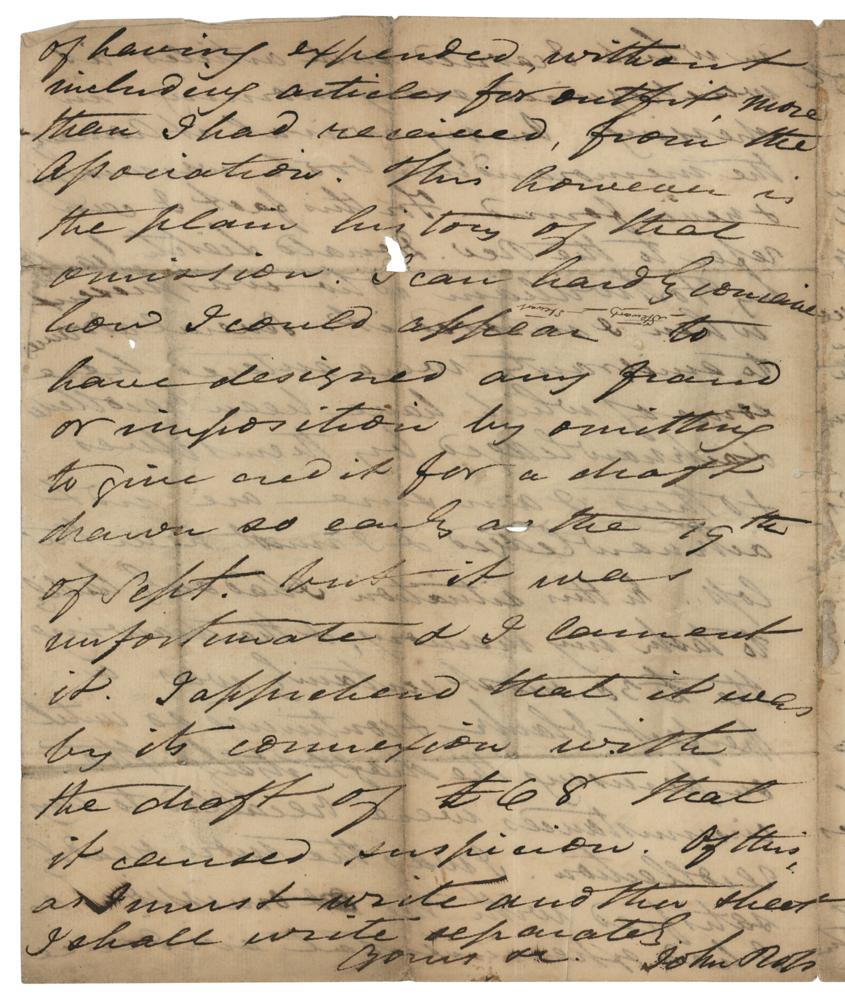 of having expended, without
including articles for outfit, more
than I had received, from the
Association. This however is
the plain history of that
omission. I can hardly conceive
how I could appear to
have designed any fraud
or imposition by omitting
to give credit for a draft
drawn so early as the 19th
of Sept. but it was
unfortunate & I lament
it. I apprehend that it was
by its connexion with
the draft of £68 that
it caused suspicion. Of this,
as I must write another sheet
I shall write separately
Yours &c. John Ross